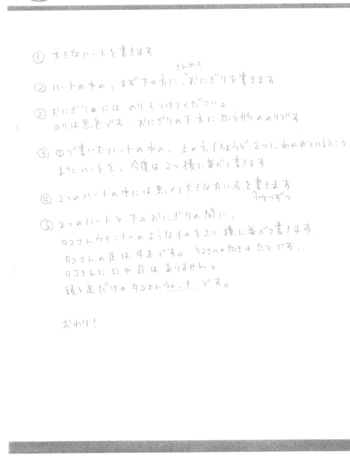 ① 大きなハートを書きます
さんかく
② ハートの中の、まず下の方に、おにぎりを書きます
② おにぎりには のりもつけてください。
のりは黒色です。おにぎりの下方に四方形ののりです
③ ①で書いたハートの中の、上の方(ちょうど2つにわかれているところ
またハートを、今度は2つ横に並べて書きます
④ 2つのハートの中には黒くて大きな丸い点を書きます
1つずつ
⑤ 2つのハートと下のおにぎりの間に、
タコさんウインナーのようなものを2つ横に並べて書きます
タコさんの足は4本です。タコさんの向きはたてです。
タコさんに口や目はありません。
頭と足だけのタコさんウィンナーです。
おわり!